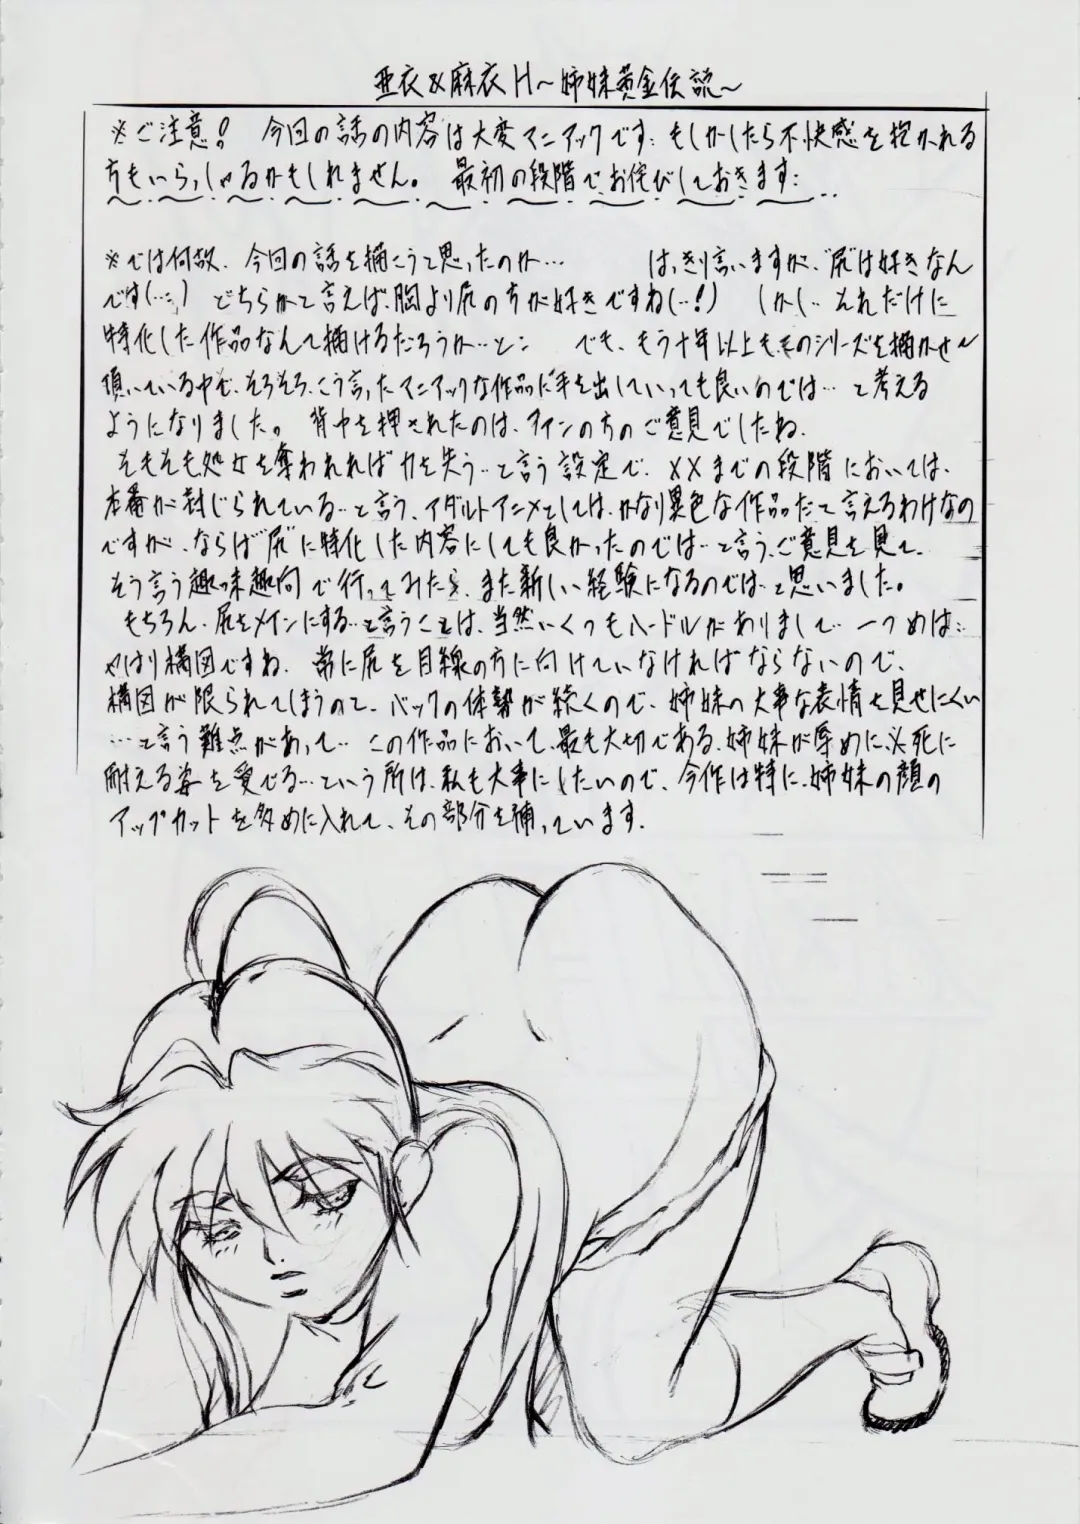 亜衣&麻衣H～姉妹黄金伝説～
※ご注意! 今回の話の内容は大変マニアックです… もしかしたら不快感を抱かれる
方もいらっしゃるかもしれません。 最初の段階でお詫びしておきます…
※では何故、今回の話を描こうと思ったのか… はっきり言いますが、"尻"は好きなん
です(…;) どちらかと言えば、胸より尻の方が好きですね(…!) しかし… それだけに
特化した作品なんて描けるだろうか…と… でも、もう十年以上も、このシリーズを描かせて
頂いている中で、そろそろ、こう言ったマニアックな作品に手を出していっても良いのでは… と考える
ようになりました。 背中を押されたのは、ファンの方のご意見でしたね.
そもそも処女を奪われれば力を失う…と言う設定で、××までの段階においては、
本番が封じられている…と言う、アダルトアニメとしては、かなり異色な作品だと言えるわけなの
ですが、ならば"尻"に特化した内容にしても良かったのでは…と言う、ご意見を見て、
そう言う趣味趣向で行ってみたら、また新しい経験になるのでは…と思いました。
もちろん、尻をメインにする…と言うことは、当然いくつもハードルがありまして… 一つめは…
やはり構図ですね. 常に尻を目線の方に向けていなければならないので、
構図が限られてしまうのと、バックの体勢が続くので、姉妹の大事な表情を見せにくい
…と言う難点があって… この作品において、最も大切である、姉妹が辱めに、必死に
耐える姿を愛でる…という所は、私も大事にしたいので、今作は特に、姉妹の顔の
アップカットを多めに入れて、その部分を補っています.